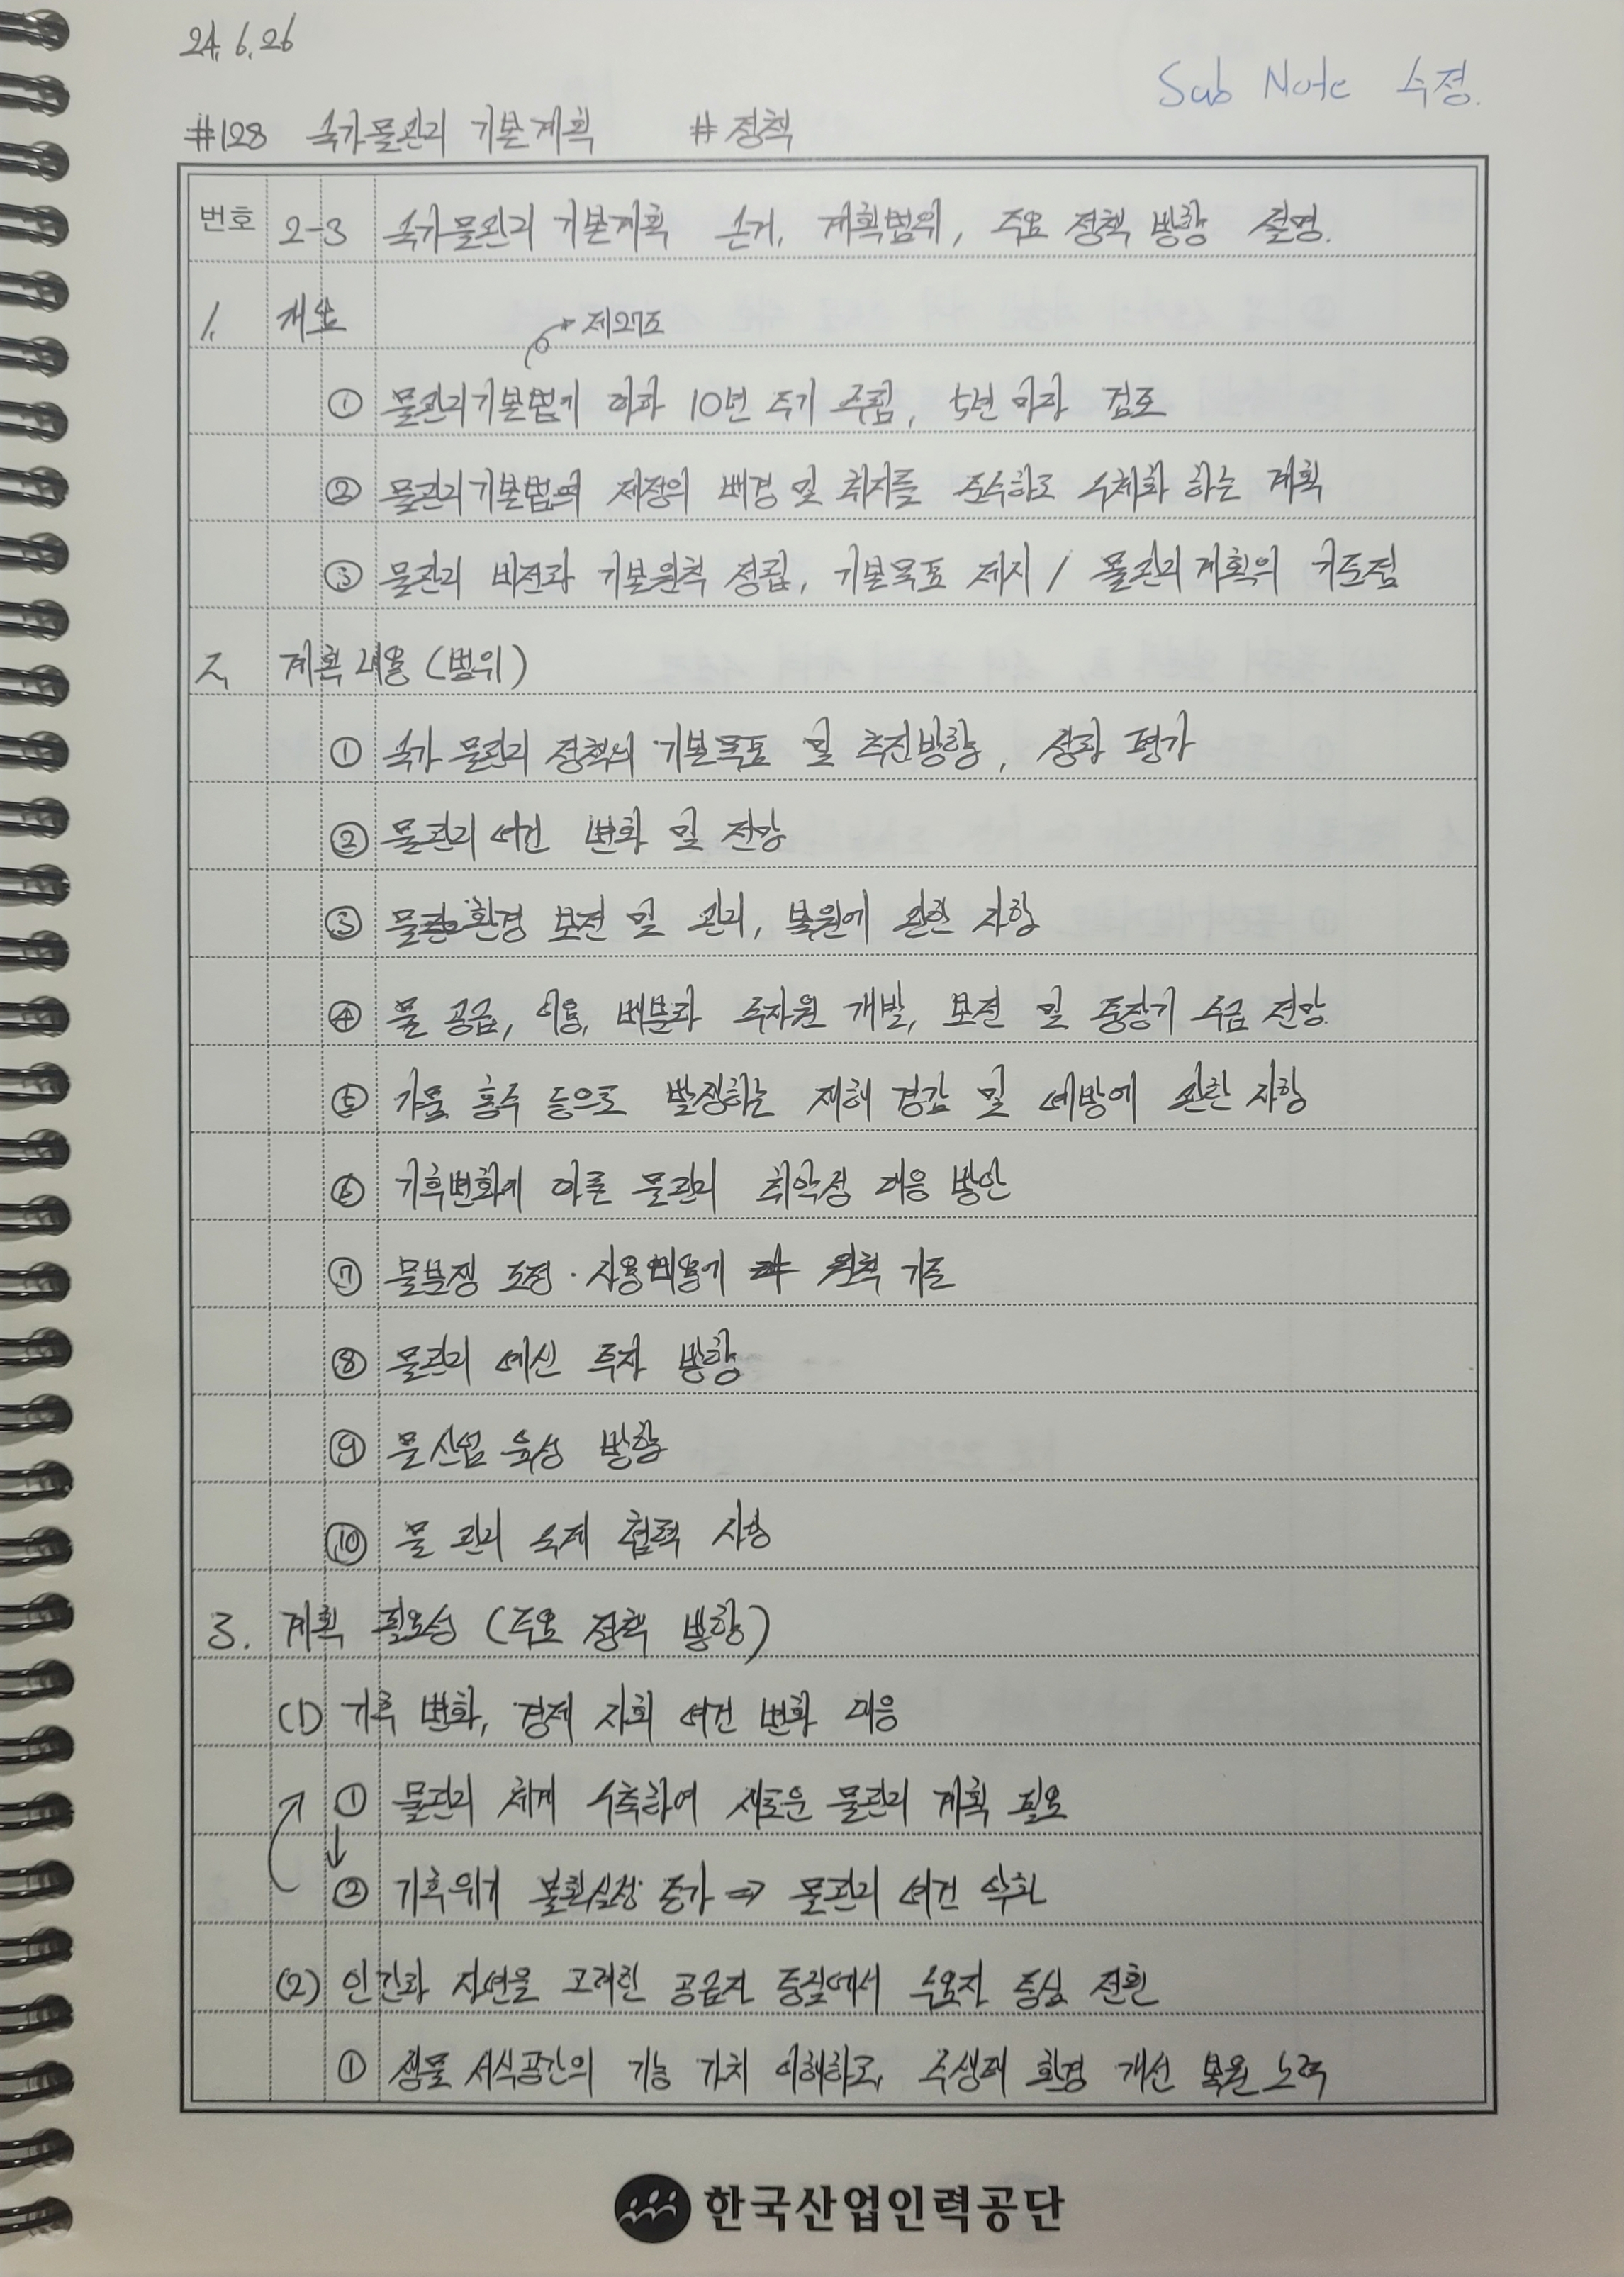 24.6.26
Sub Note 수정.
#128 국가물관리 기본계획 #정책
번호 2-3 국가물관리 기본계획 근거, 계획범위, 주요 정책 방향 설명.
1. 개요
제27조
① 물관리기본법에 따라 10년 주기 수립, 5년 마다 검토
② 물관리기본법의 제정의 배경 및 취지를 준수하고 구체화 하는 계획
③ 물관리 비전과 기본원칙 정립, 기본목표 제시 / 물관리 계획의 기준점
2. 계획 내용 (범위)
① 국가 물관리 정책의 기본목표 및 추진방향, 성과 평가
② 물관리 여건 변화 및 전망
③ 물환경 보전 및 관리, 복원에 관한 사항
④ 물 공급, 이용, 배분과 수자원 개발, 보전 및 중장기 수급 전망.
⑤ 가뭄 홍수 등으로 발생하는 재해 경감 및 예방에 관한 사항
⑥ 기후변화에 따른 물관리 취약성 대응 방안
⑦ 물분쟁 조정 · 사용비용에 원칙 기준
⑧ 물관리 예산 투자 방향
⑨ 물산업 육성 방향
⑩ 물 관리 국제 협력 사항
3. 계획 필요성 (주요 정책 방향)
(1) 기후 변화, 경제 사회 여건 변화 대응
① 물관리 체계 구축하여 새로운 물관리 계획 필요
② 기후위기 불확실성 증가 ⇒ 물관리 여건 악화
(2) 인간과 자연을 고려한 공급자 중심에서 수요자 중심 전환
① 생물 서식공간의 기능 가치 이해하고, 수생태 환경 개선 복원 노력
한국산업인력공단